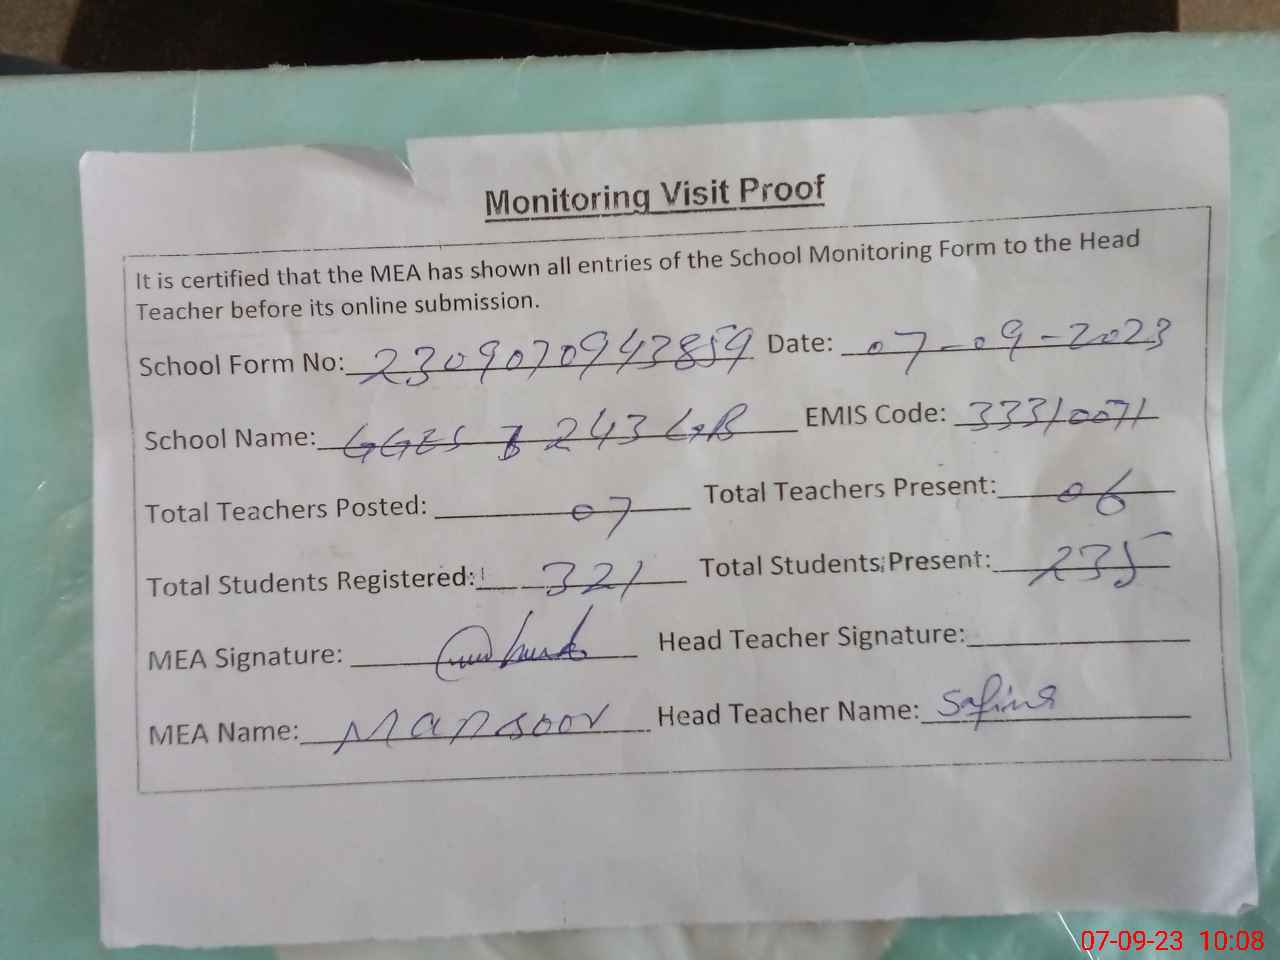 Monitoring Visit Proof
It is certified that the MEA has shown all entries of the School Monitoring Form to the Head
Teacher before its online submission.
School Form No: 2309070943859 Date: 07-09-2023
School Name: GGES 243 GB EMIS Code: 33310071
Total Teachers Posted: 07 Total Teachers Present: 06
Total Students Registered: 321 Total Students Present: 235
MEA Signature: Head Teacher Signature:
MEA Name: Mansoor Head Teacher Name: Safina
07-09-23 10:08